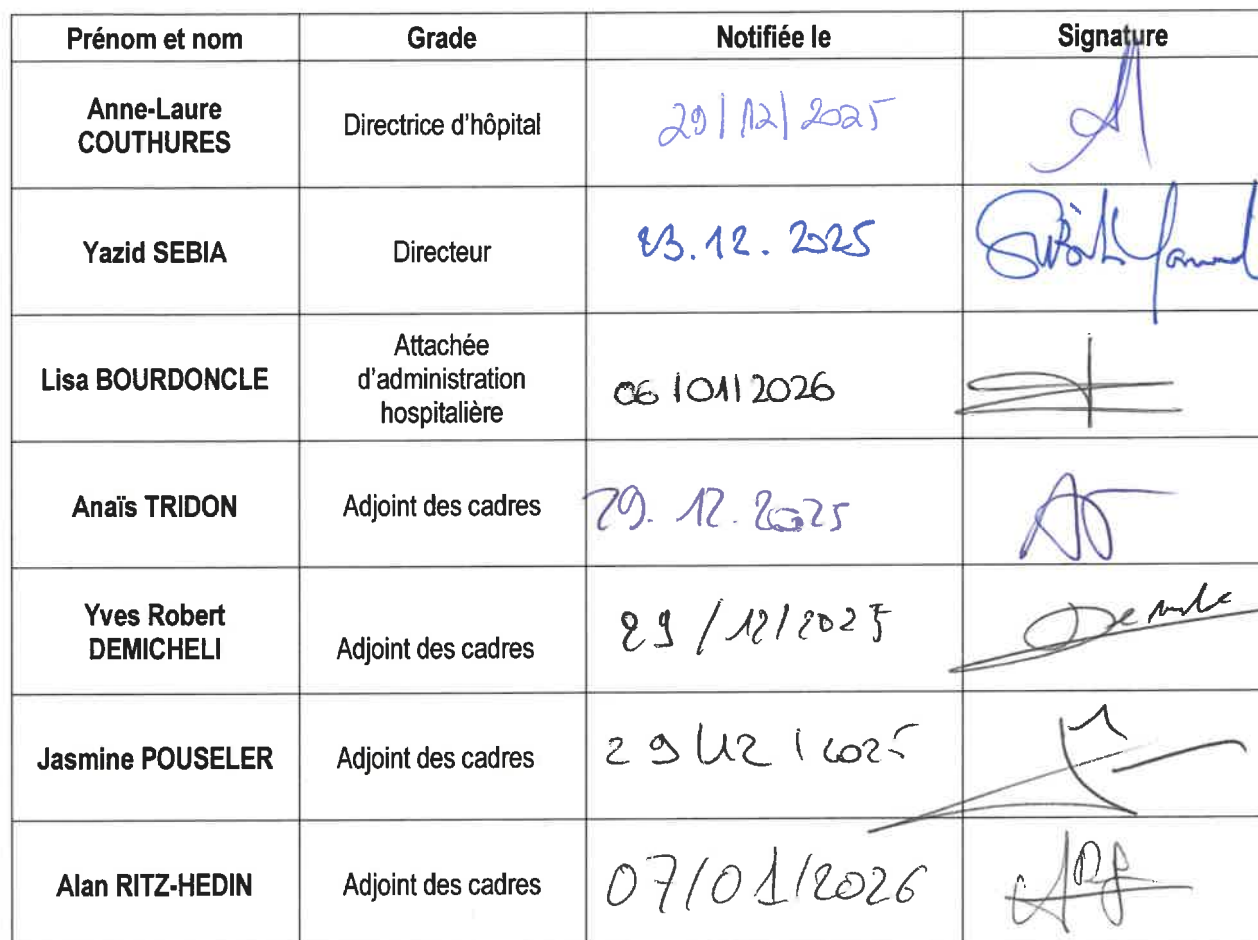 Prénom et nom Grade Notifiée le Signature
Anne-Laure
COUTHURES
Directrice d'hôpital
29/12/2025
Yazid SEBIA
Directeur
23.12.2025
Lisa BOURDONCLE
Attachée
d'administration
hospitalière
06/01/2026
Anaïs TRIDON
Adjoint des cadres
29.12.2025
Yves Robert
DEMICHELI
Adjoint des cadres
29/12/2025
Jasmine POUSELER
Adjoint des cadres
29/12/2025
Alan RITZ-HEDIN
Adjoint des cadres
07/01/2026